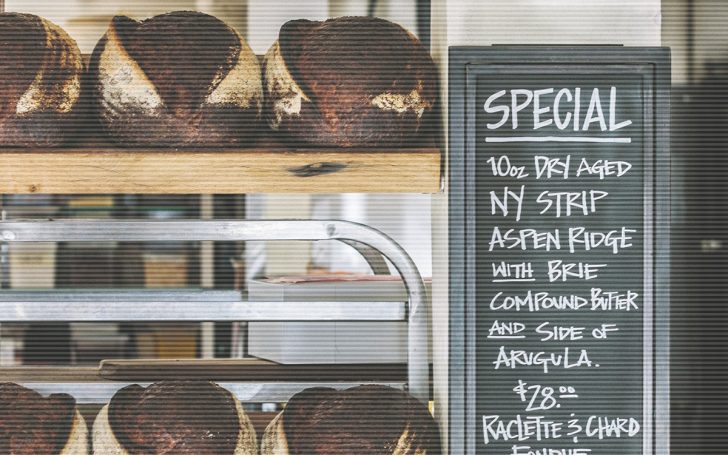 SPECIAL
10oz DRY AGED
NY STRIP
ASPEN RIDGE
WITH BRIE
COMPOUND BUTTER
AND SIDE OF
ARUGULA.
$28.00
RACLETTE & CHARD
FONDUE